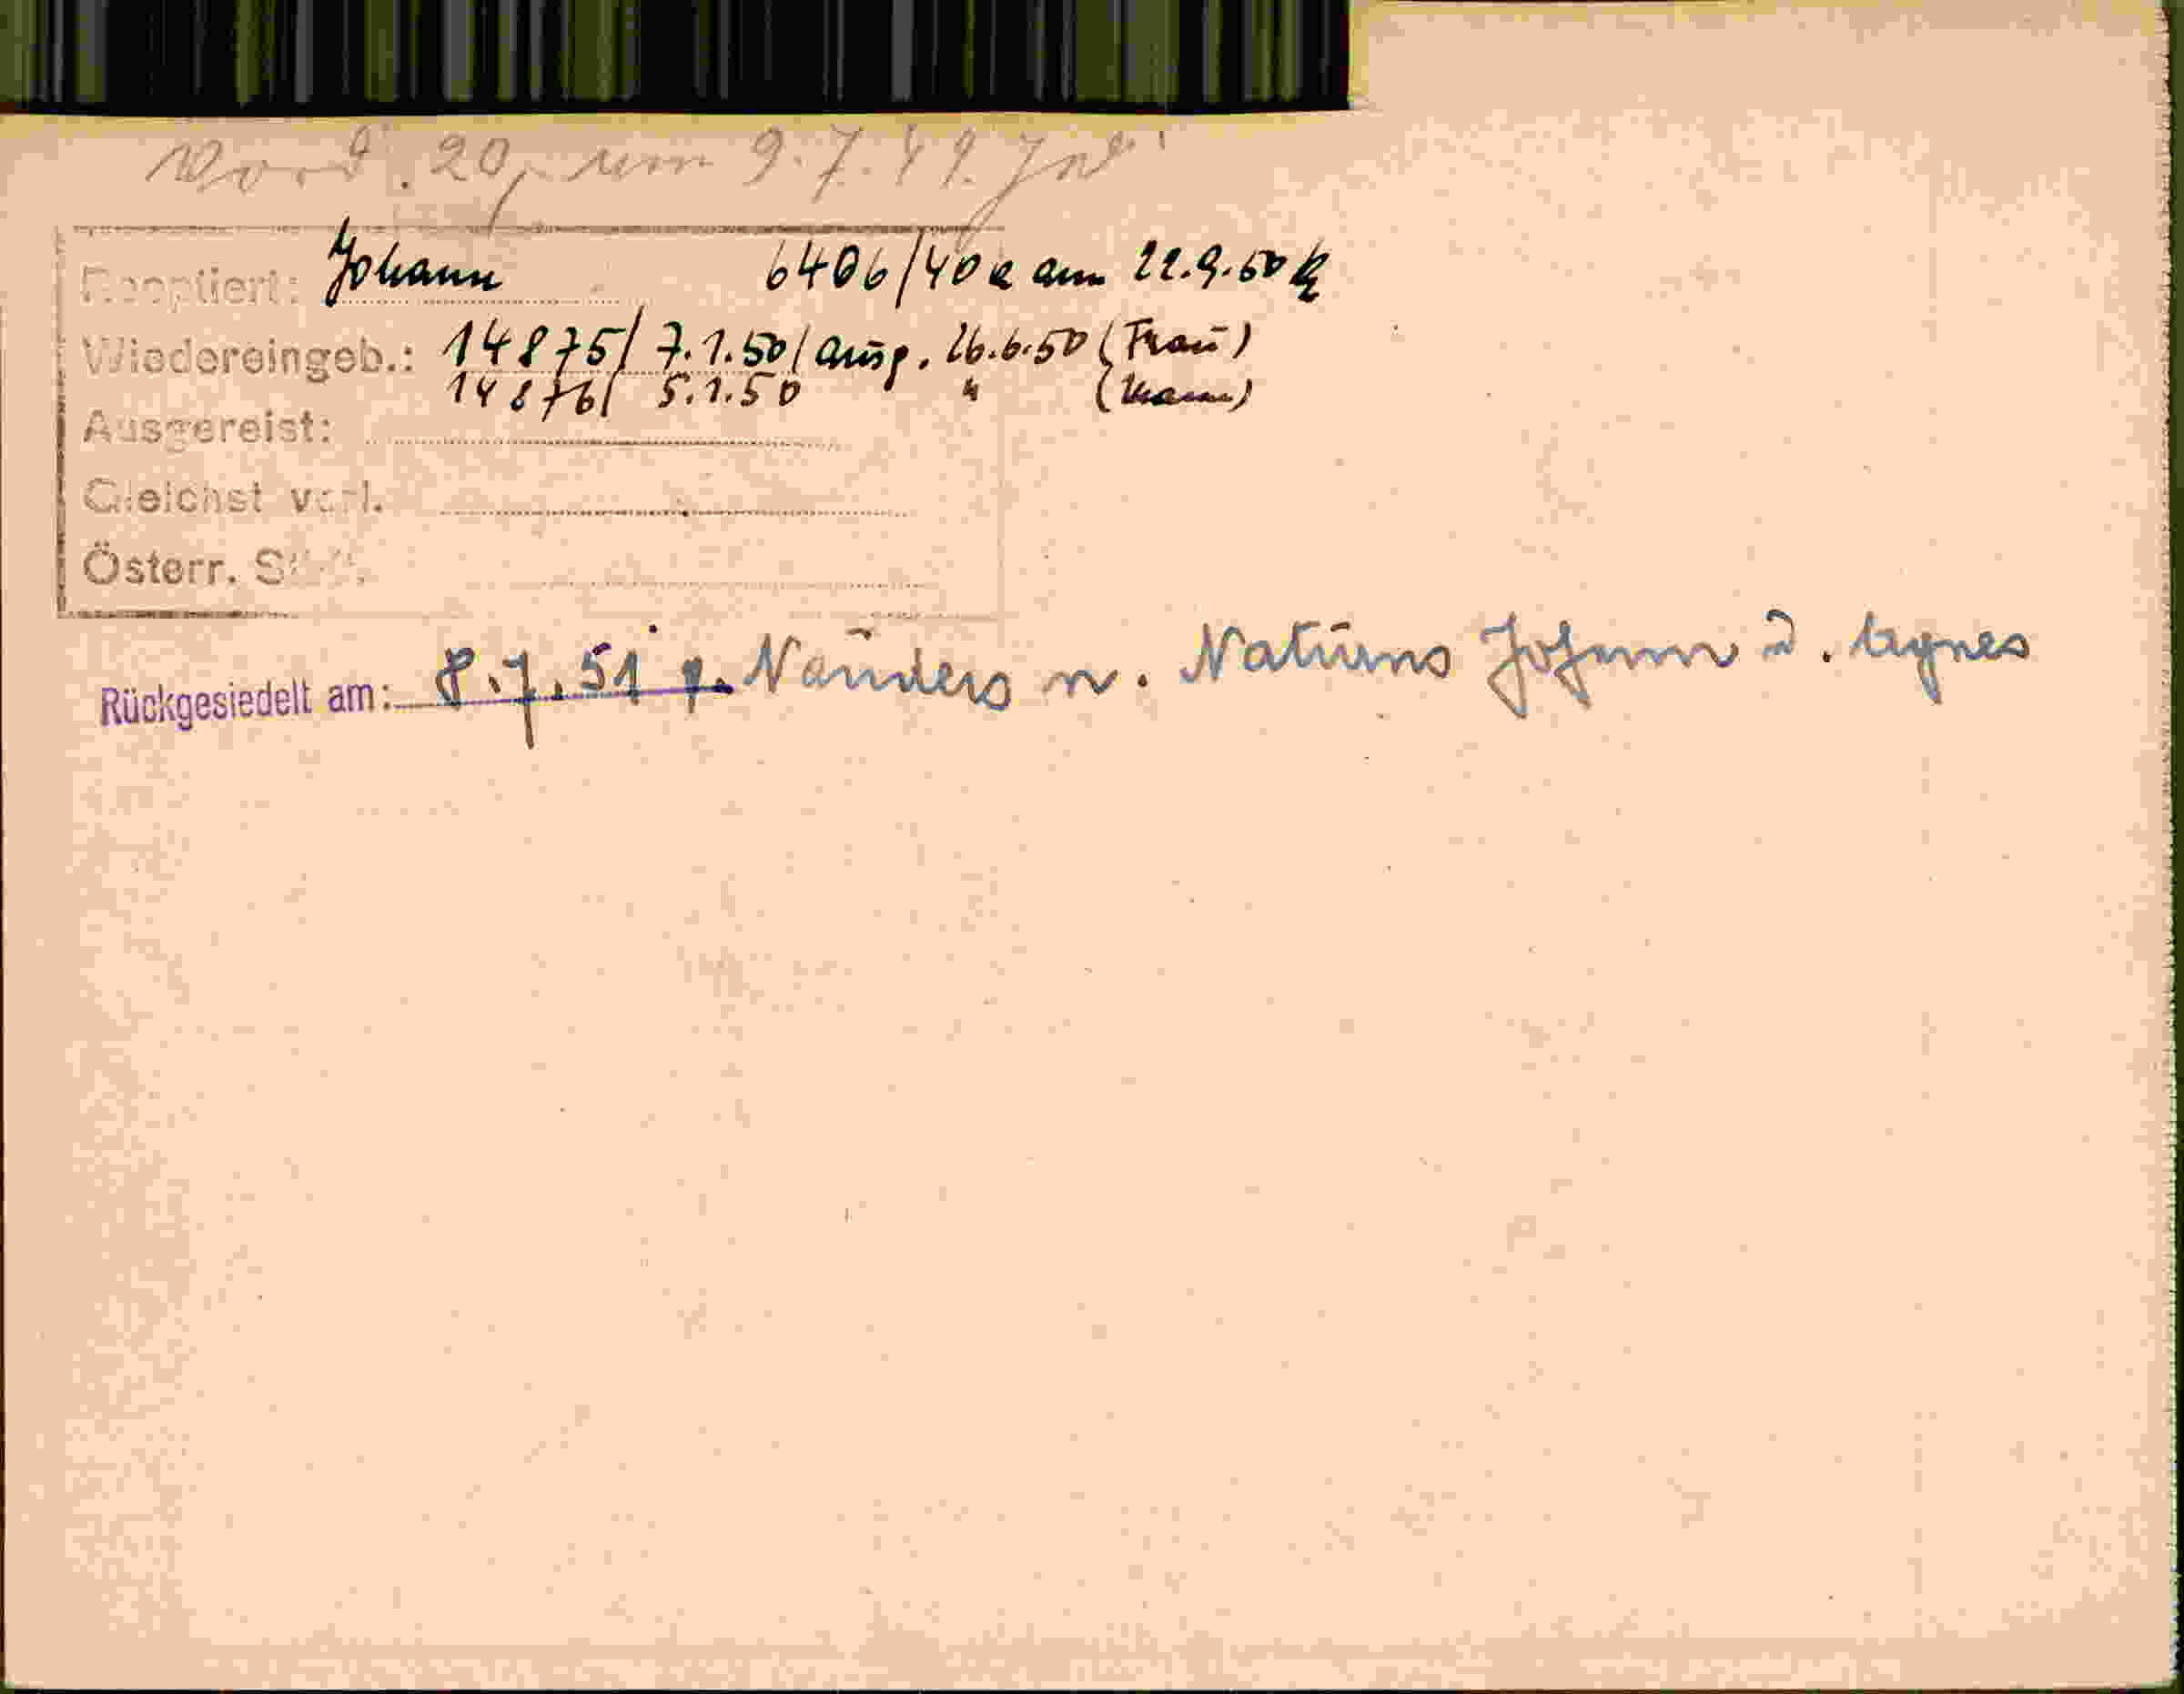 Vord. 20, um 9.7.49.
Reoptiert: Johann 6406/40 am 22.9.50
Wiedereingeb.: 14875/ 7.1.50/ ausg. 26.6.50 (Frau)
14876/ 5.1.50 " (Mann)
Ausgereist:
Gleichst verl.
Österr.
Rückgesiedelt am: 8.7.51 v. Nauders n. Naturns Johann u. Agnes